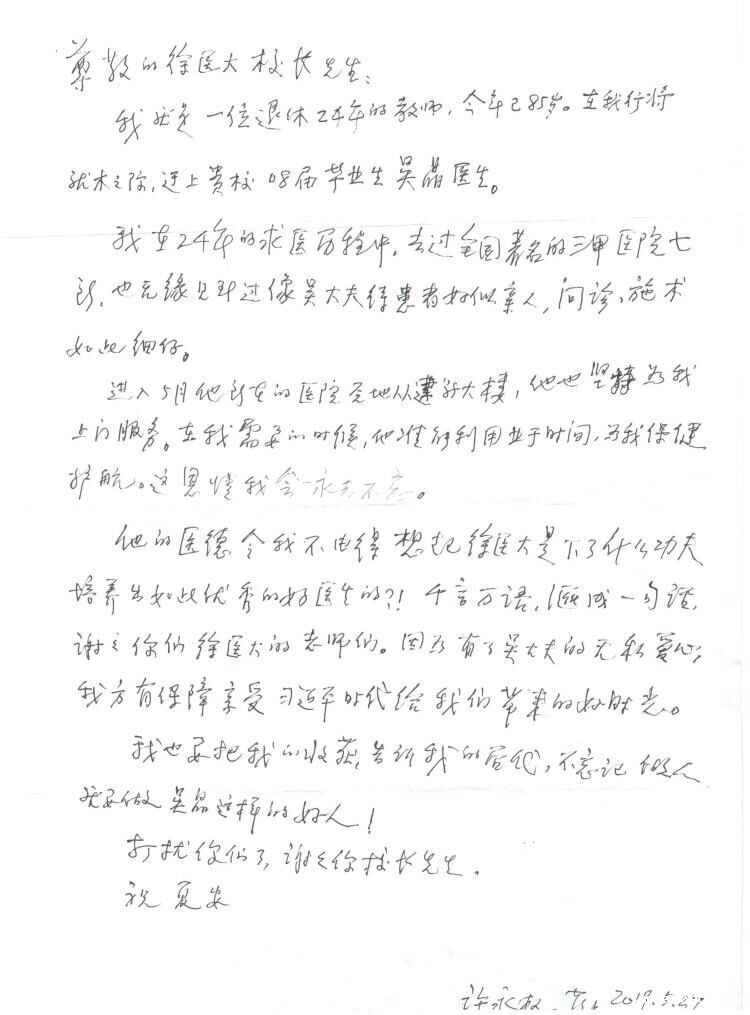 尊敬的徐医大校长先生:
我就是一位退休24年的教师,今年已85岁。在我行将
就木之际,迂上贵校08届毕业生吴晶医生。
我在24年的求医历程中,去过全国著名的三甲医院七
所,也无缘见到过像吴大夫待患者好似亲人,问诊、施术
如此细仔。
进入5月他所在的医院 大楼,他也坚持为我
上门服务。在我需要的时候,他准能利用业于时间,为我保健
护航。这恩情我会永志不忘。
他的医德令我不由得想起徐医大是下了什么功夫
培养出如此优秀的好医生的?!千言万语,汇成一句话,
谢谢你们徐医大的老师们。因为有了吴大夫的无私爱心,
我方有保障享受习近平时代给我们带来的好时光。
我也要把我的收获,告诉我的后代,不忘记做人
就要做吴晶这样的好人!
打扰你们了,谢谢你校长先生。
祝 夏安
许永权 2019.5.27